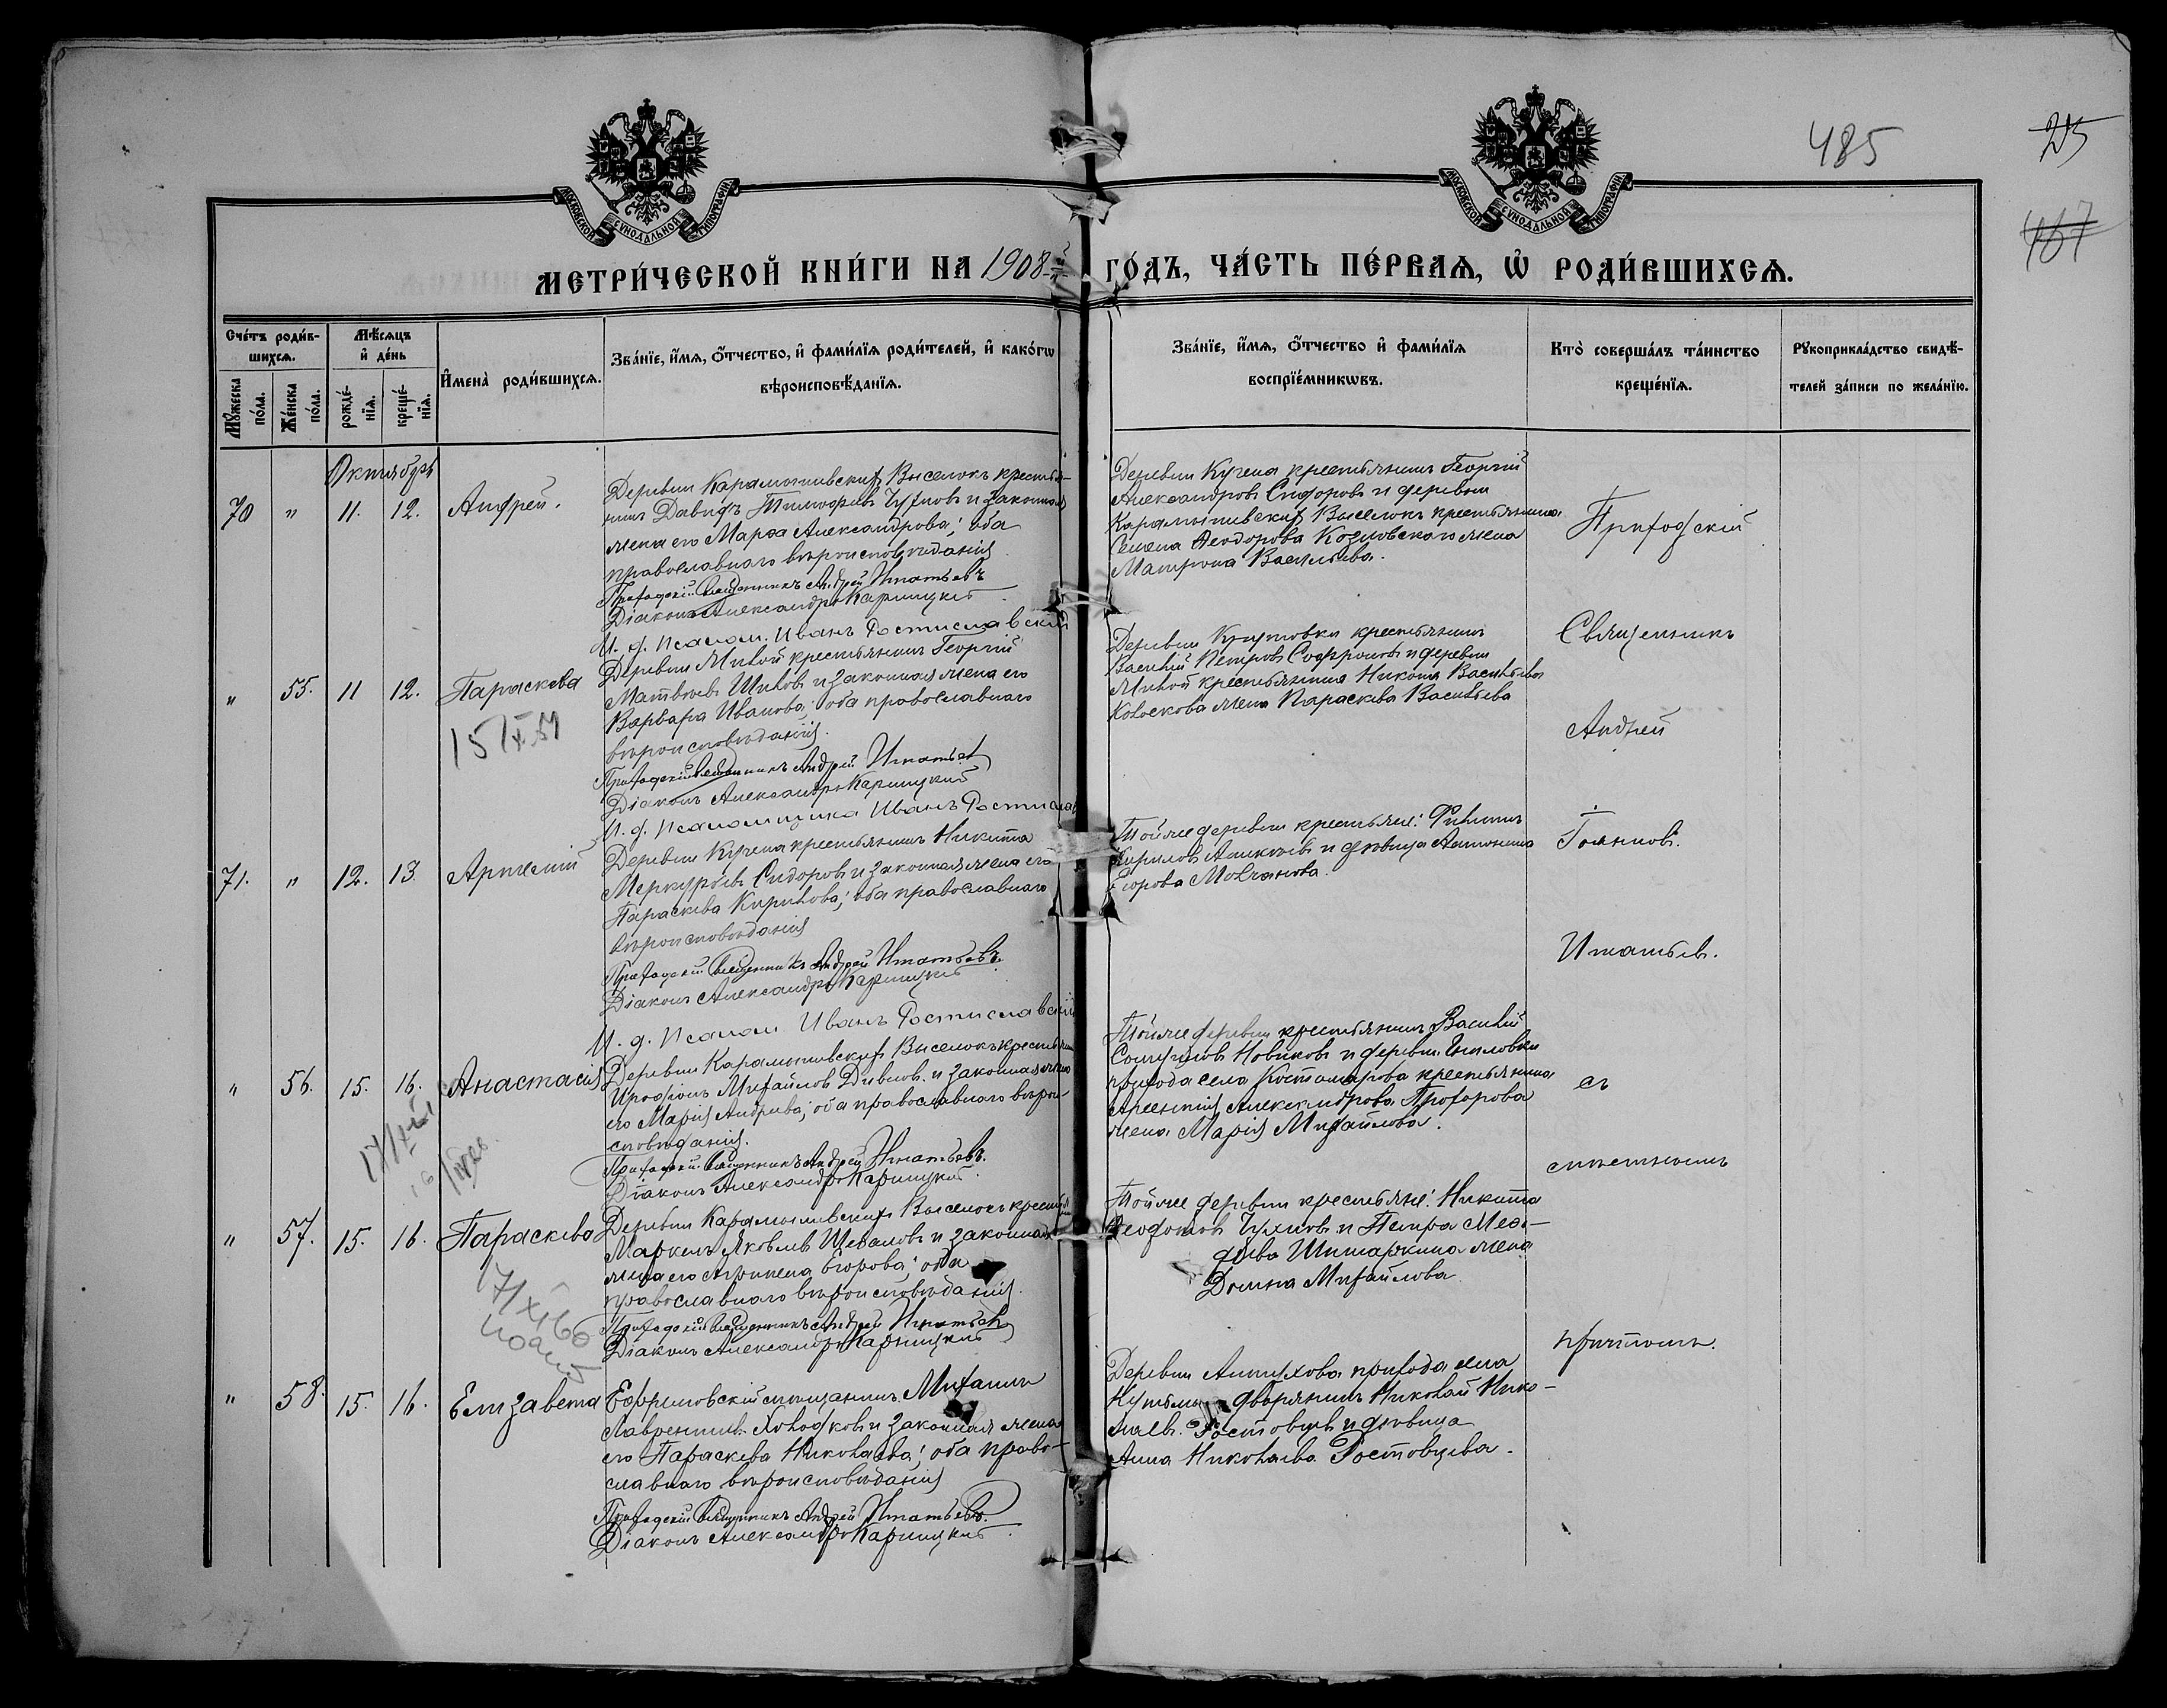 485
25
467
МОСКОВСКОЙ СѴНОДАЛЬНОЙ ТИПОГРАФІИ
МОСКОВСКОЙ СѴНОДАЛЬНОЙ ТИПОГРАФІИ
МЕТРИ́ЧЕСКОЙ КНИ́ГИ НА 1908-й ГО́ДЪ, ЧА́СТЬ ПЕ́РВАѦ, Ѽ РОДИ́ВШИХСѦ.
Сче́тъ роди́вшихсѧ.
Мꙋ́жеска по́ла.
Же́нска по́ла.
Мѣ́сѧцъ и҆ де́нь
рожде́нїѧ.
креще́нїѧ.
И҆мена̀ роди́вшихсѧ.
Зва́нїе, и҆́мѧ, ѻ҆́тчество, и҆ фами́лїѧ роди́телей, и҆ како́гѡ
вѣроисповѣ́данїѧ.
Зва́нїе, и҆́мѧ, ѻ҆́тчество и҆ фами́лїѧ
воспрїе́мникѡвъ.
Кто̀ соверша́лъ та́инство
креще́нїѧ.
Рꙋкоприкла́дство свидѣ́-
телей за́писи по жела́нїю.
Октябрь
70 " 11. 12. Андрей.
Деревни Карамышевскихъ Выселокъ крестья-
нинъ Давидъ Тимофеевъ Чухновъ и законная
жена его Марѳа Александрова; оба
православнаго вѣроисповѣданія
Приходскій Священникъ Андрей Игнатьевъ
Діаконъ Александръ Карницкій
И. д. псалом. Иванъ Ростиславскій
Деревни Кучена крестьянинъ Георгій
Александровъ Сидоровъ и деревни
Карамышевскихъ Выселокъ крестьянина
Семена Ѳеодорова Козловскаго жена
Матрона Васильева.
" 55. 11 12. Параскева
15/X 51
Деревни Живой крестьянинъ Георгій
Матвѣевъ Шиловъ и законная жена его
Варвара Иванова; оба православнаго
вѣроисповѣданія.
Приходскій Священникъ Андрей Игнатьевъ
Діаконъ Александръ Карницкій
И. д. псаломщика Иванъ Ростислав
Деревни Крутовки крестьянинъ
Василій Петровъ Софроновъ и деревни
Живой крестьянина Никона Васильева
Колоскова жена Параскева Васильева
71. " 12. 13. Артемій
Деревни Кучена крестьянинъ Никита
Меркурьевъ Сидоровъ и законная жена его
Параскева Кирилова; оба православнаго
вѣроисповѣданія
Приходскій Священникъ Андрей Игнатьевъ.
Діаконъ Александръ Карницкій
И. д. псалом Иванъ Ростиславскій
Той же деревни крестьяне: Филиппъ
Кириловъ Алексѣевъ и дѣвица Антонина
Егорова Молчанова.
" 56. 15. 16. Анастасія
Деревни Карамышевскихъ Выселокъ крестьянинъ
Иродіонъ Михайловъ Дивновъ и законная жена
его Марія Андреева; оба православнаго вѣрои-
сповѣданія.
Приходскій Священникъ Андрей Игнатьевъ.
Діаконъ Александръ Карницкій.
Той же деревни крестьянинъ Василій
Новиковъ и деревни
прихода села Костомарова крестьянина
Александрова Прохорова
жена Марія Михайлова.
" 57. 15. 16. Параскева
Деревни Карамышевскихъ Выселокъ крестья
Маркелъ Яковлевъ Шеваловъ и законная
жена его Агрипена Егорова; оба
православнаго вѣроисповѣданія.
Приходскій Священникъ Андрей Игнатьевъ
Діаконъ Александръ Карницкій
Той же деревни крестьяне: Никита
Ѳеодотовъ Чухновъ и Петра Меѳо-
діева Шишаркина жена
Домна Михайлова.
" 58. 15. 16. Елизавета
Ефремовскій мѣщанинъ Михаилъ
Лаврентьевъ Холодковъ и законная жена
его Параскева Николаева; оба право-
славнаго вѣроисповѣданія
Приходскій Священникъ Андрей Игнатьевъ.
Діаконъ Александръ Карницкій.
Деревни прихода села
дворянинъ Николай Нико-
лаевъ Ростовцевъ и дѣвица
Анна Николаева Ростовцева.
Приходскій
Священникъ
Андрей
Игнатьевъ.
съ
мѣстнымъ
причтомъ.